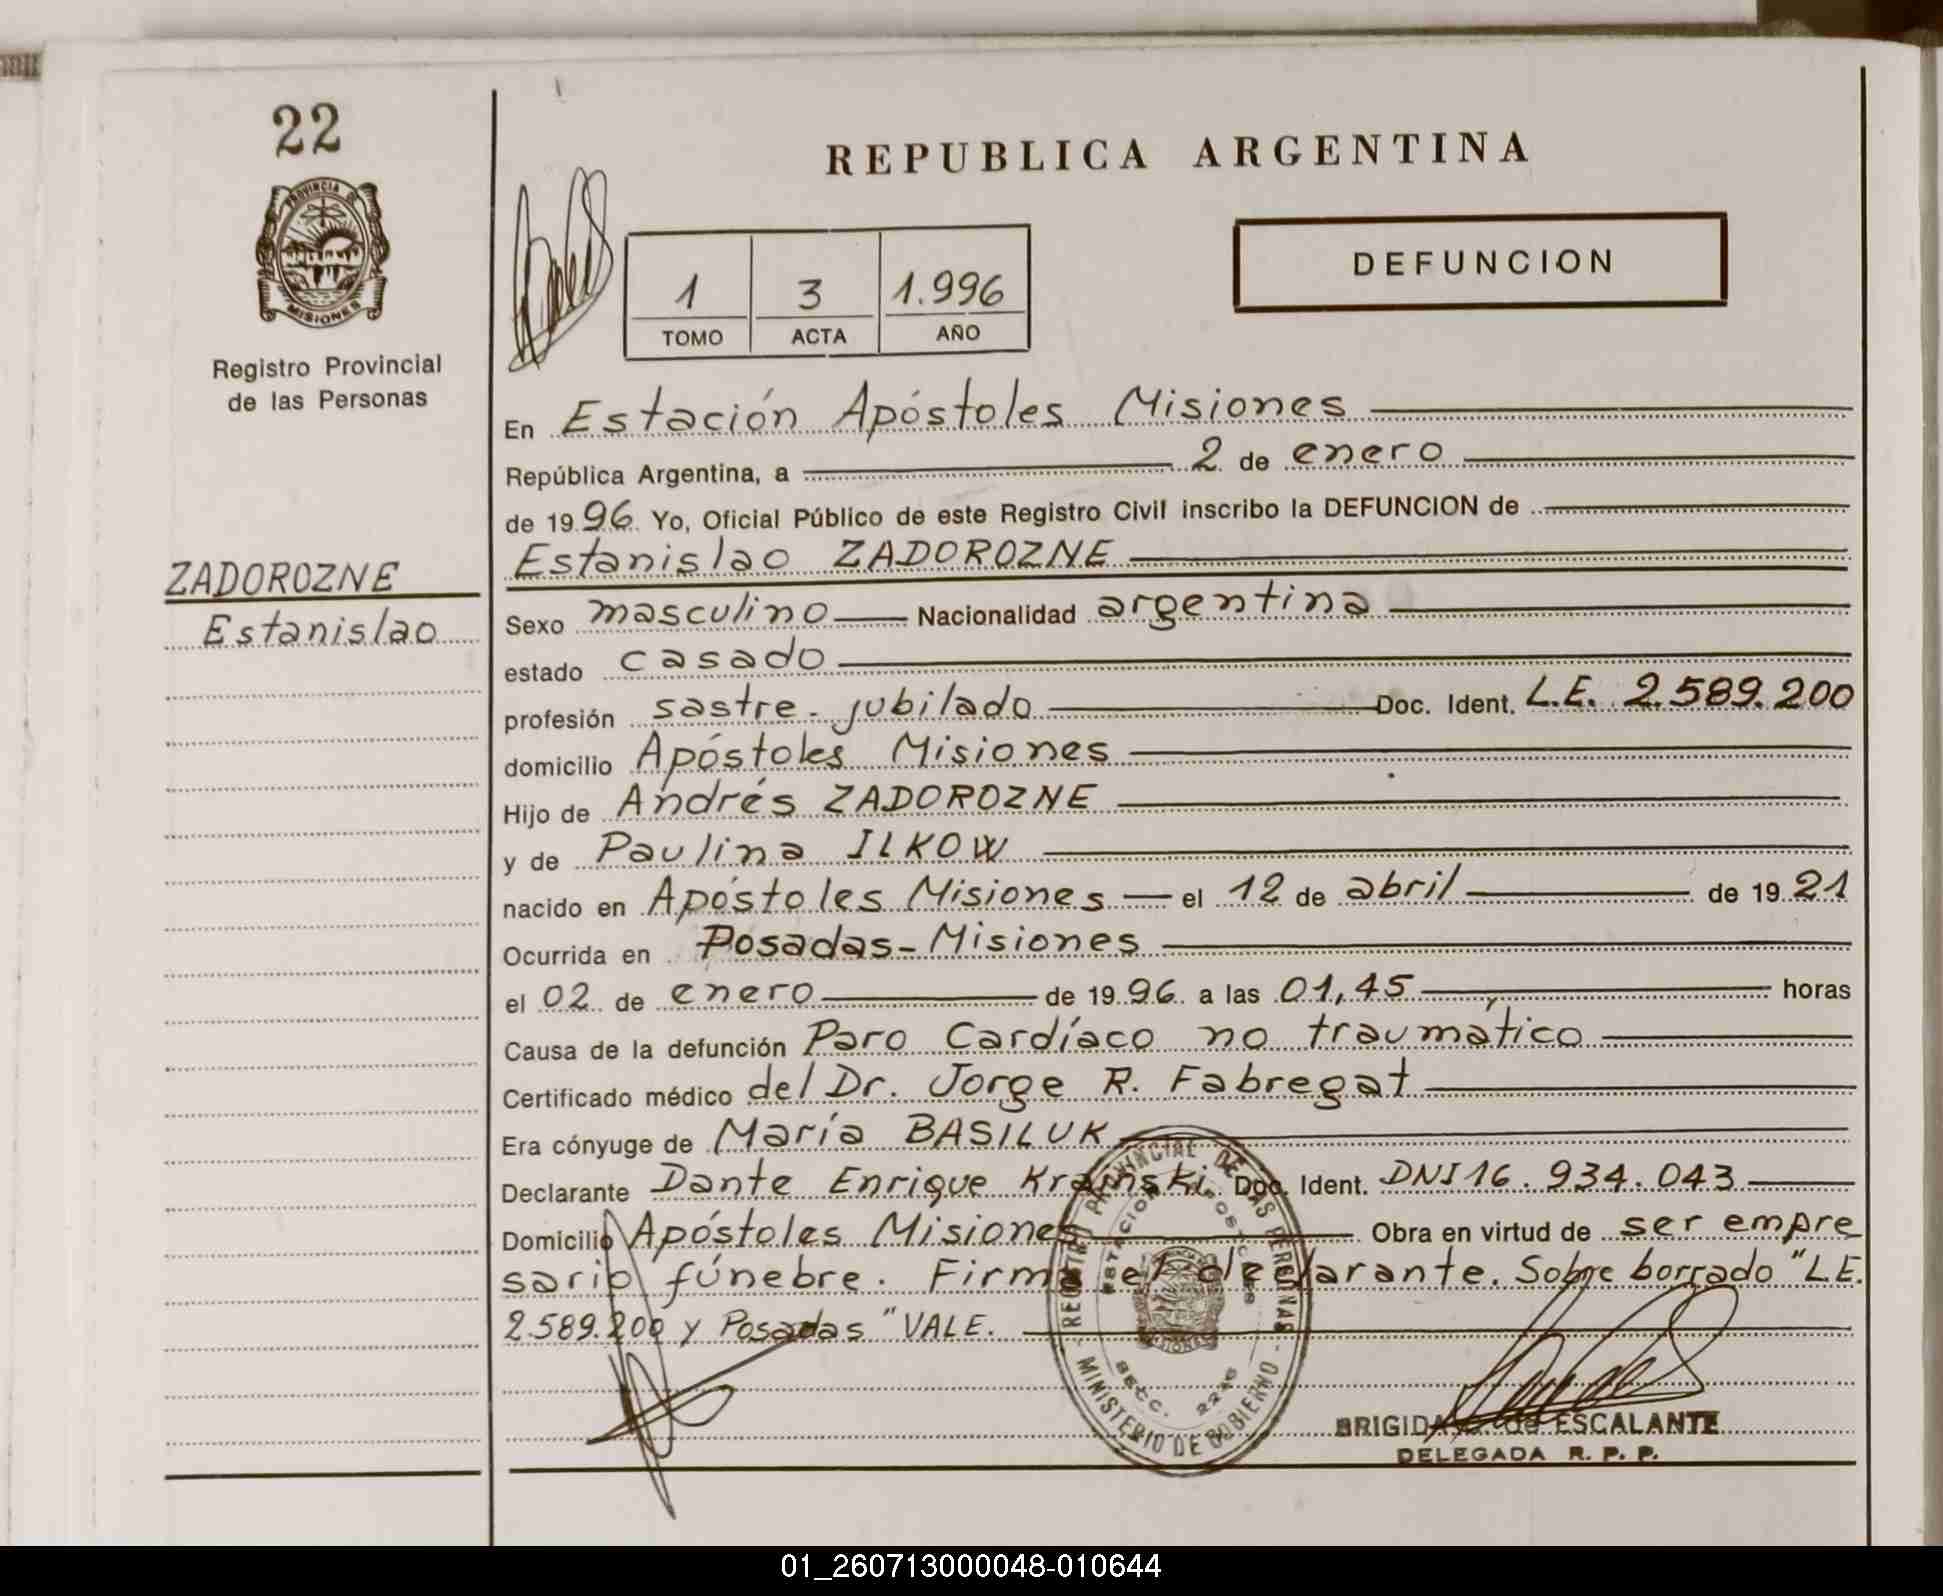 22
PROVINCIA DE
MISIONES
Registro Provincial
de las Personas
ZADOROZNE
Estanislao
REPUBLICA ARGENTINA
1 3 1.996
TOMO ACTA AÑO
DEFUNCION
En Estación Apóstoles Misiones
República Argentina, a 2 de enero
de 1996 Yo, Oficial Público de este Registro Civil inscribo la DEFUNCION de
Estanislao ZADOROZNE
Sexo masculino Nacionalidad argentina
estado casado
profesión sastre-jubilado Doc. Ident. L.E. 2.589.200
domicilio Apóstoles Misiones
Hijo de Andrés ZADOROZNE
y de Paulina ILKOW
nacido en Apóstoles Misiones — el 12 de abril de 1921
Ocurrida en Posadas-Misiones
el 02 de enero de 1996 a las 01,45 horas
Causa de la defunción Paro Cardíaco no traumático
Certificado médico del Dr. Jorge R. Fabregat
Era cónyuge de María BASILUK
Declarante Dante Enrique Doc. Ident. DNI 16.934.043
Domicilio Apóstoles Misiones Obra en virtud de ser empre
sario fúnebre. Firma el declarante. Sobre borrado "L.E.
2.589.200 y Posadas" VALE.
REGISTRO PROVINCIAL DE LAS PERSONAS
MINISTERIO DE GOBIERNO
ESTACION APOSTOLES
SECC. 2216
BRIGIDA de ESCALANTE
DELEGADA R. P. P.
01_260713000048-010644